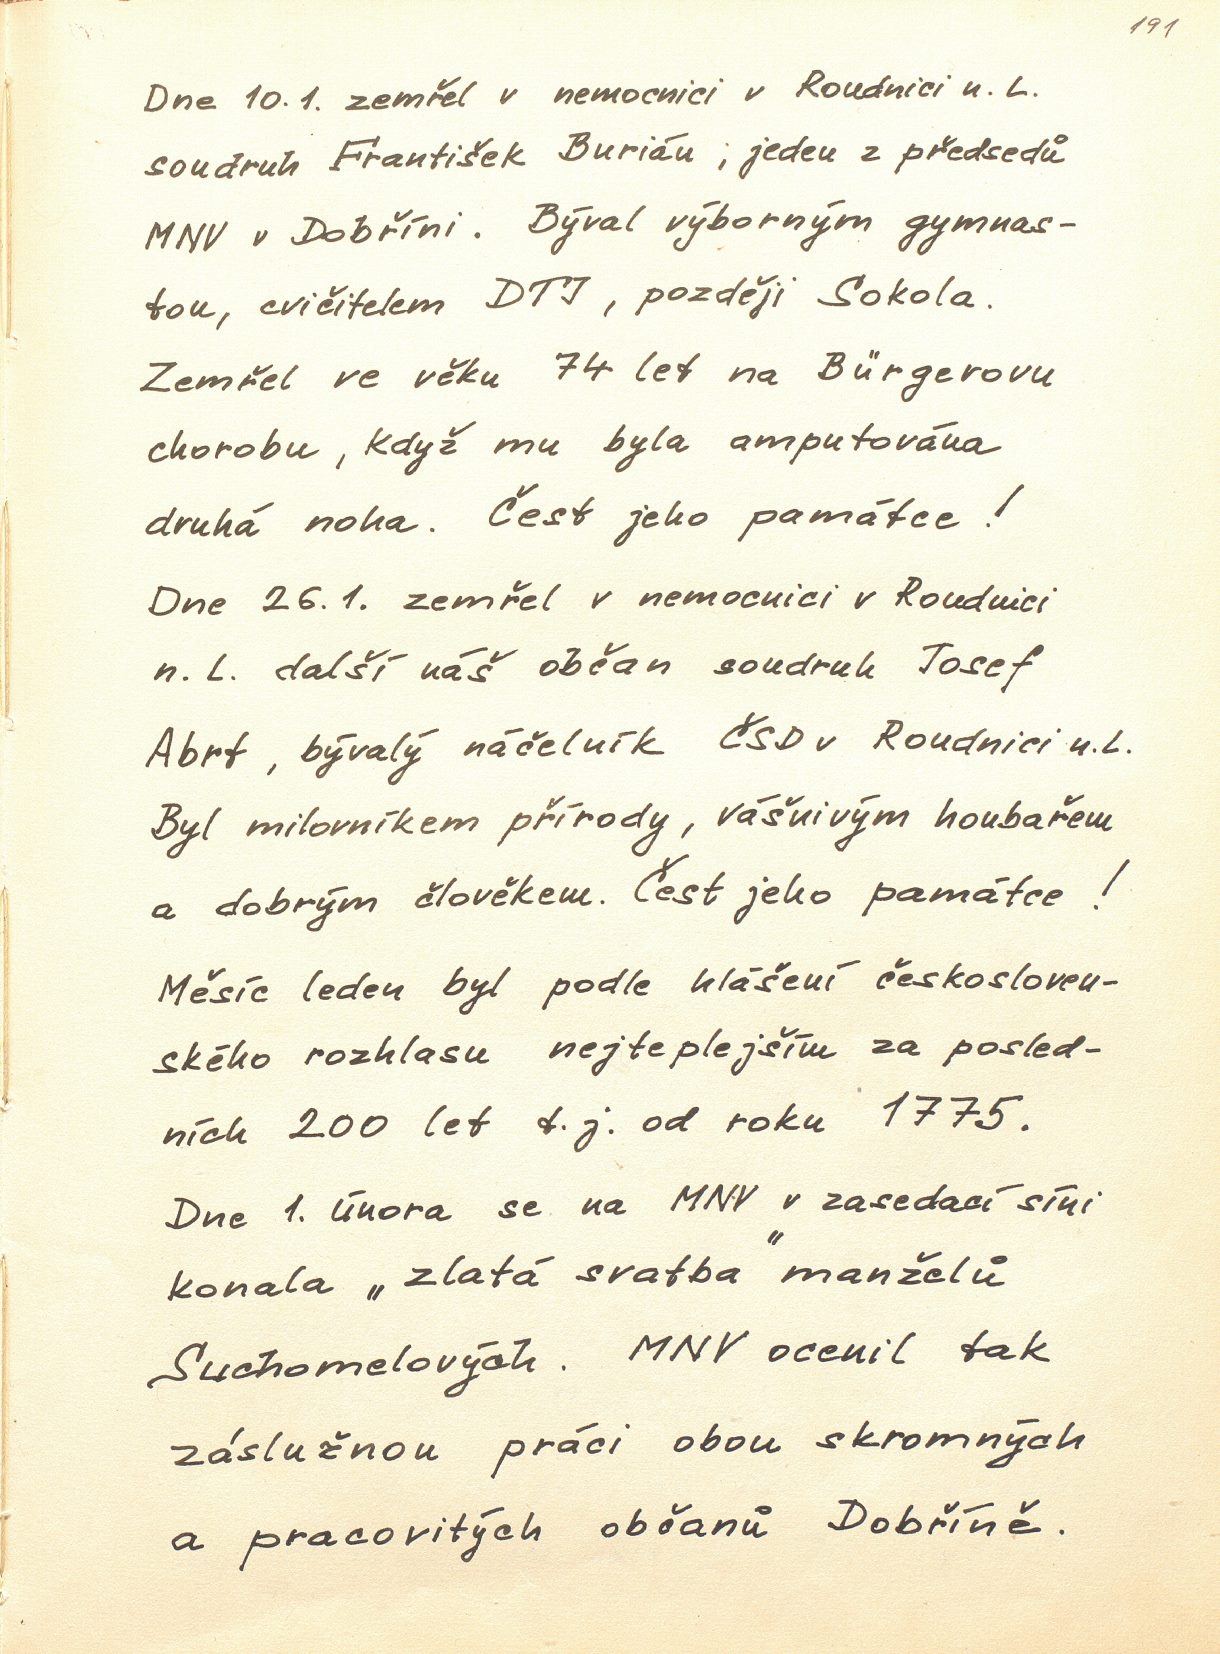 191
Dne 10.1. zemřel v nemocnici v Roudnici n. L.
soudruh František Burián, jeden z předsedů
MNV v Dobříni. Býval výborným gymnas-
tou, cvičitelem DTJ, později Sokola.
Zemřel ve věku 74 let na Bürgerovu
chorobu, když mu byla amputována
druhá noha. Čest jeho památce!
Dne 26.1. zemřel v nemocnici v Roudnici
n. L. další náš občan soudruh Josef
Abrt, bývalý náčelník ČSD v Roudnici n. L.
Byl milovníkem přírody, vášnivým houbařem
a dobrým člověkem. Čest jeho památce!
Měsíc leden byl podle hlášení českosloven-
ského rozhlasu nejteplejším za posled-
ních 200 let t. j. od roku 1775.
Dne 1. února se na MNV v zasedací síni
konala „zlatá svatba" manželů
Suchomelových. MNV ocenil tak
záslužnou práci obou skromných
a pracovitých občanů Dobříně.